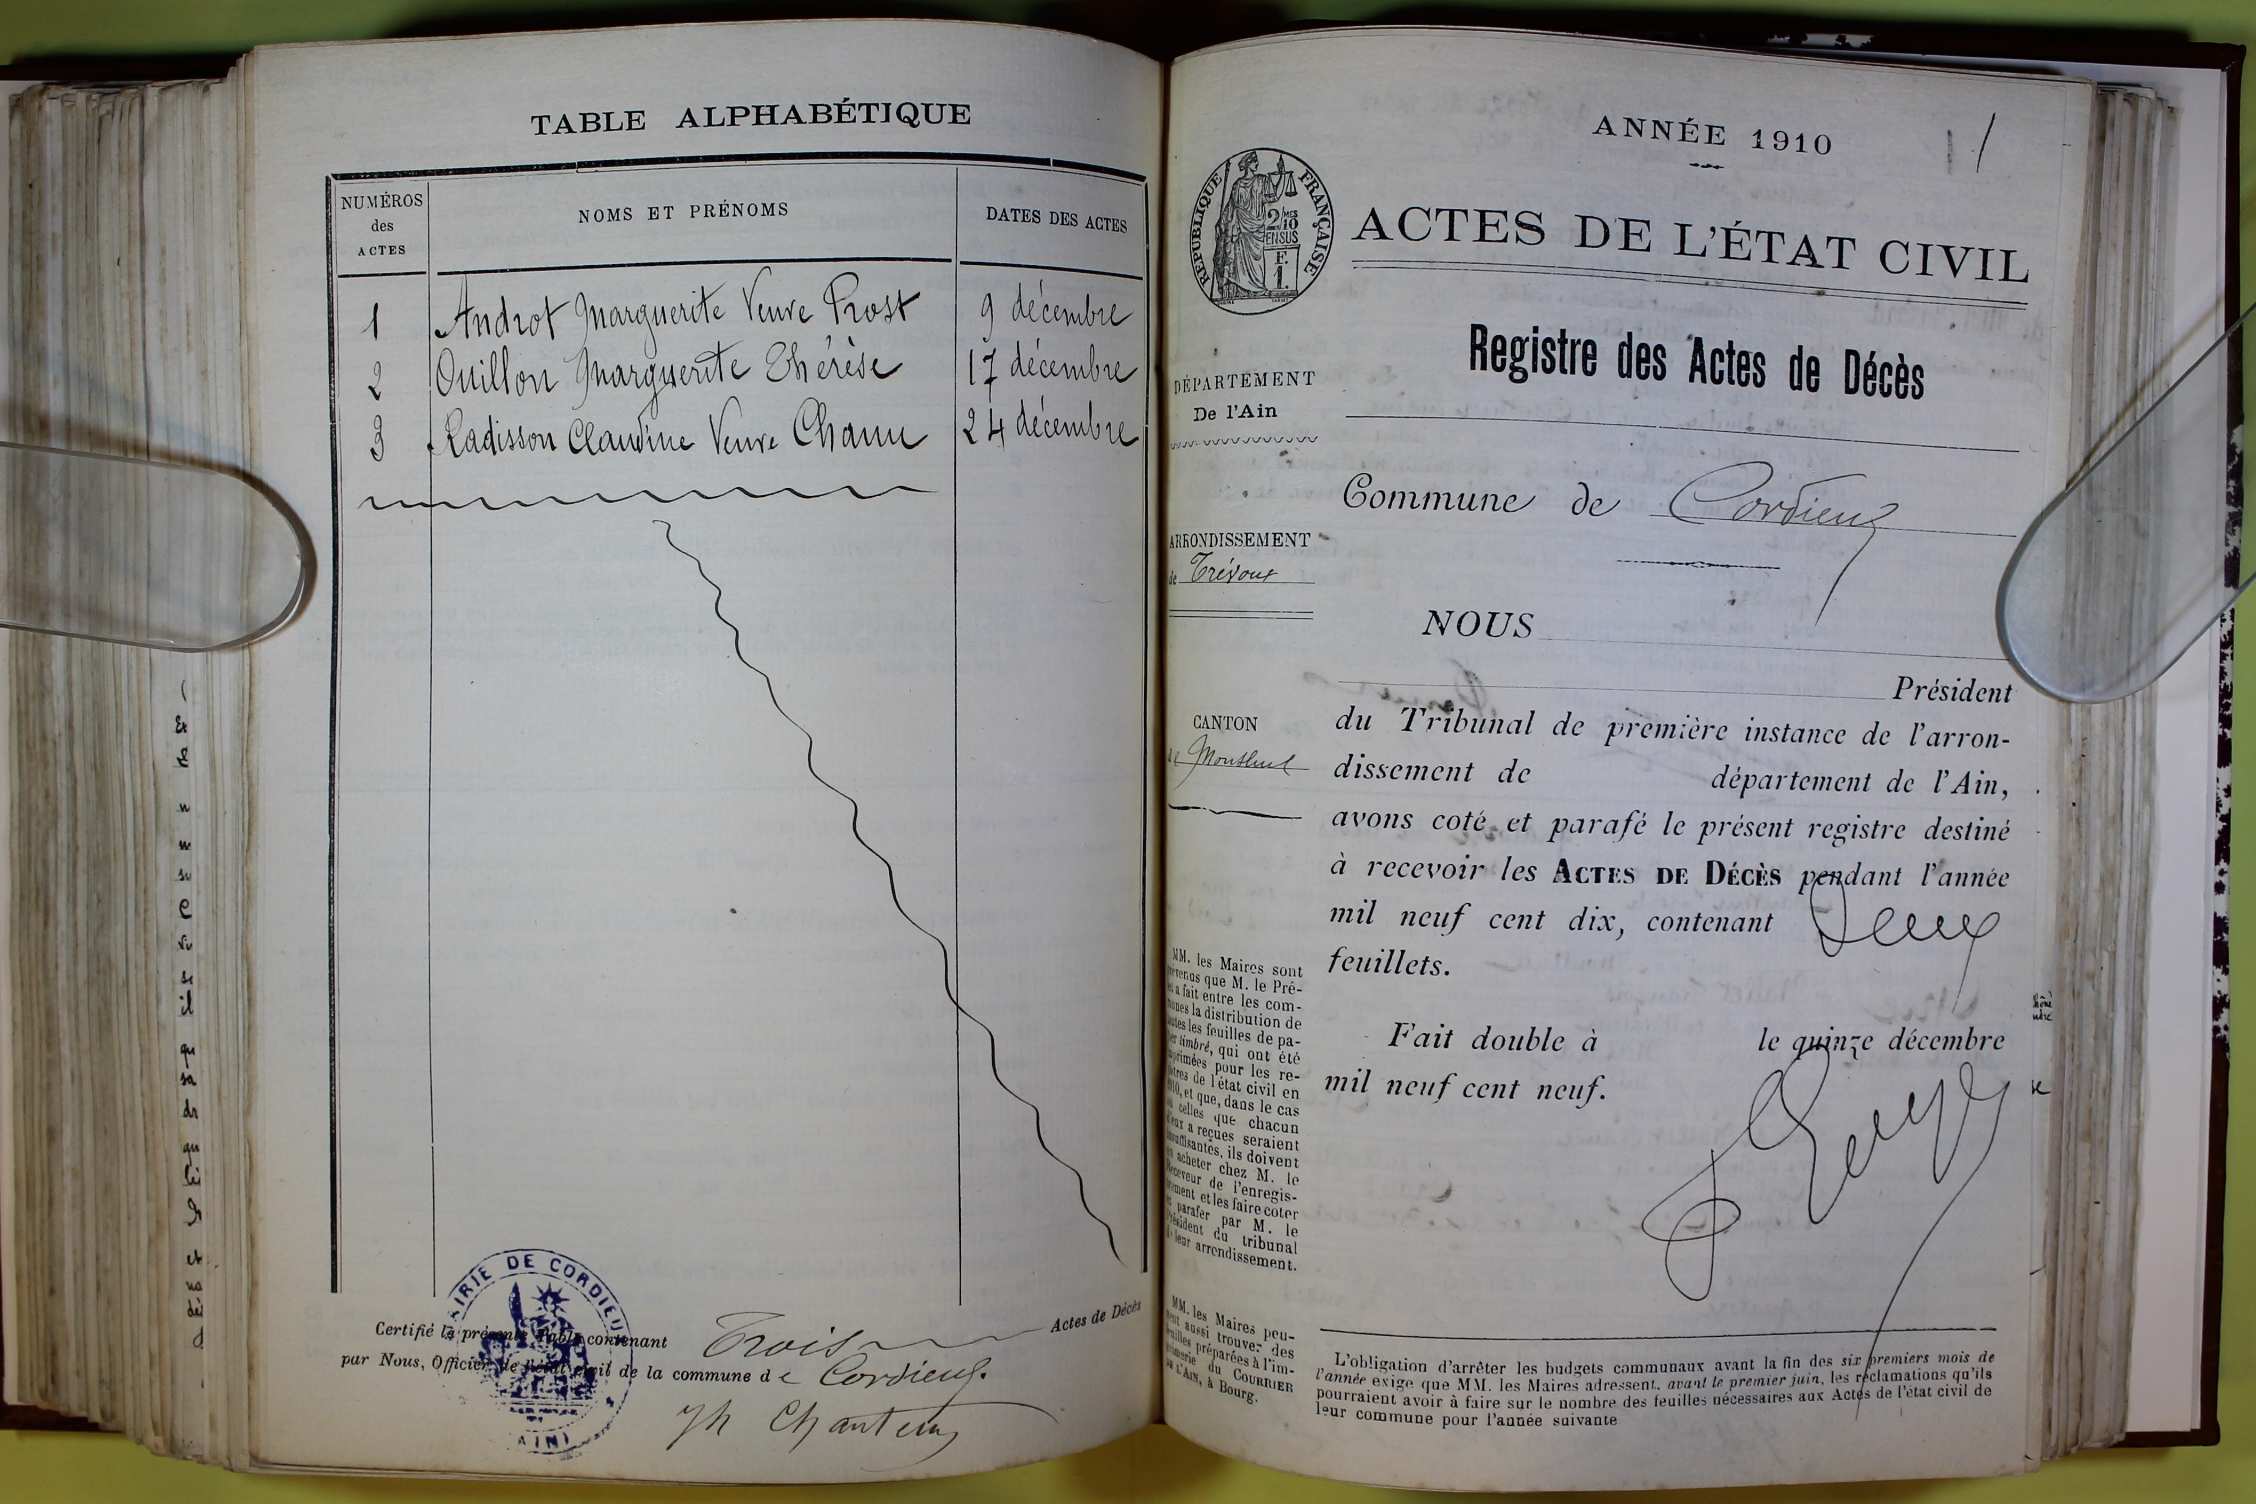 TABLE ALPHABÉTIQUE
NUMÉROS
des
ACTES
NOMS ET PRÉNOMS
DATES DES ACTES
1 Androt Marguerite Veuve Prost 9 décembre
2 Ouillon Marguerite Thérèse 17 décembre
3 Radisson Claudine Veuve Chanu 24 décembre
MAIRIE DE CORDIEUX
(AIN)
Certifié la présente Table contenant Trois Actes de Décès
par Nous, Officier de l'état civil de la commune de Cordieux.
ANNÉE 1910
1
RÉPUBLIQUE FRANÇAISE
2/10
MES
EN SUS
F.
1.
ACTES DE L'ÉTAT CIVIL
Registre des Actes de Décès
DÉPARTEMENT
De l'Ain
Commune de Cordieux
ARRONDISSEMENT
de Trévoux
CANTON
de Montluel
NOUS
Président
du Tribunal de première instance de l'arron-
dissement de département de l'Ain,
avons coté et parafé le présent registre destiné
à recevoir les ACTES DE DÉCÈS pendant l'année
mil neuf cent dix, contenant Deux
feuillets.
Fait double à le quinze décembre
mil neuf cent neuf.
MM. les Maires sont
prévenus que M. le Pré-
fet a fait entre les com-
munes la distribution de
toutes les feuilles de pa-
pier timbré, qui ont été
imprimées pour les re-
gistres de l'état civil en
1910, et que, dans le cas
où celles que chacun
d'eux a reçues seraient
insuffisantes, ils doivent
en acheter chez M. le
Receveur de l'enregis-
trement et les faire coter
et parafer par M. le
Président du tribunal
de leur arrondissement.
MM. les Maires peu-
vent aussi trouver des
feuilles préparées à l'im-
primerie du COURRIER
DE L'AIN, à Bourg.
L'obligation d'arrêter les budgets communaux avant la fin des six premiers mois de
l'année exige que MM. les Maires adressent, avant le premier juin, les réclamations qu'ils
pourraient avoir à faire sur le nombre des feuilles nécessaires aux Actes de l'état civil de
leur commune pour l'année suivante